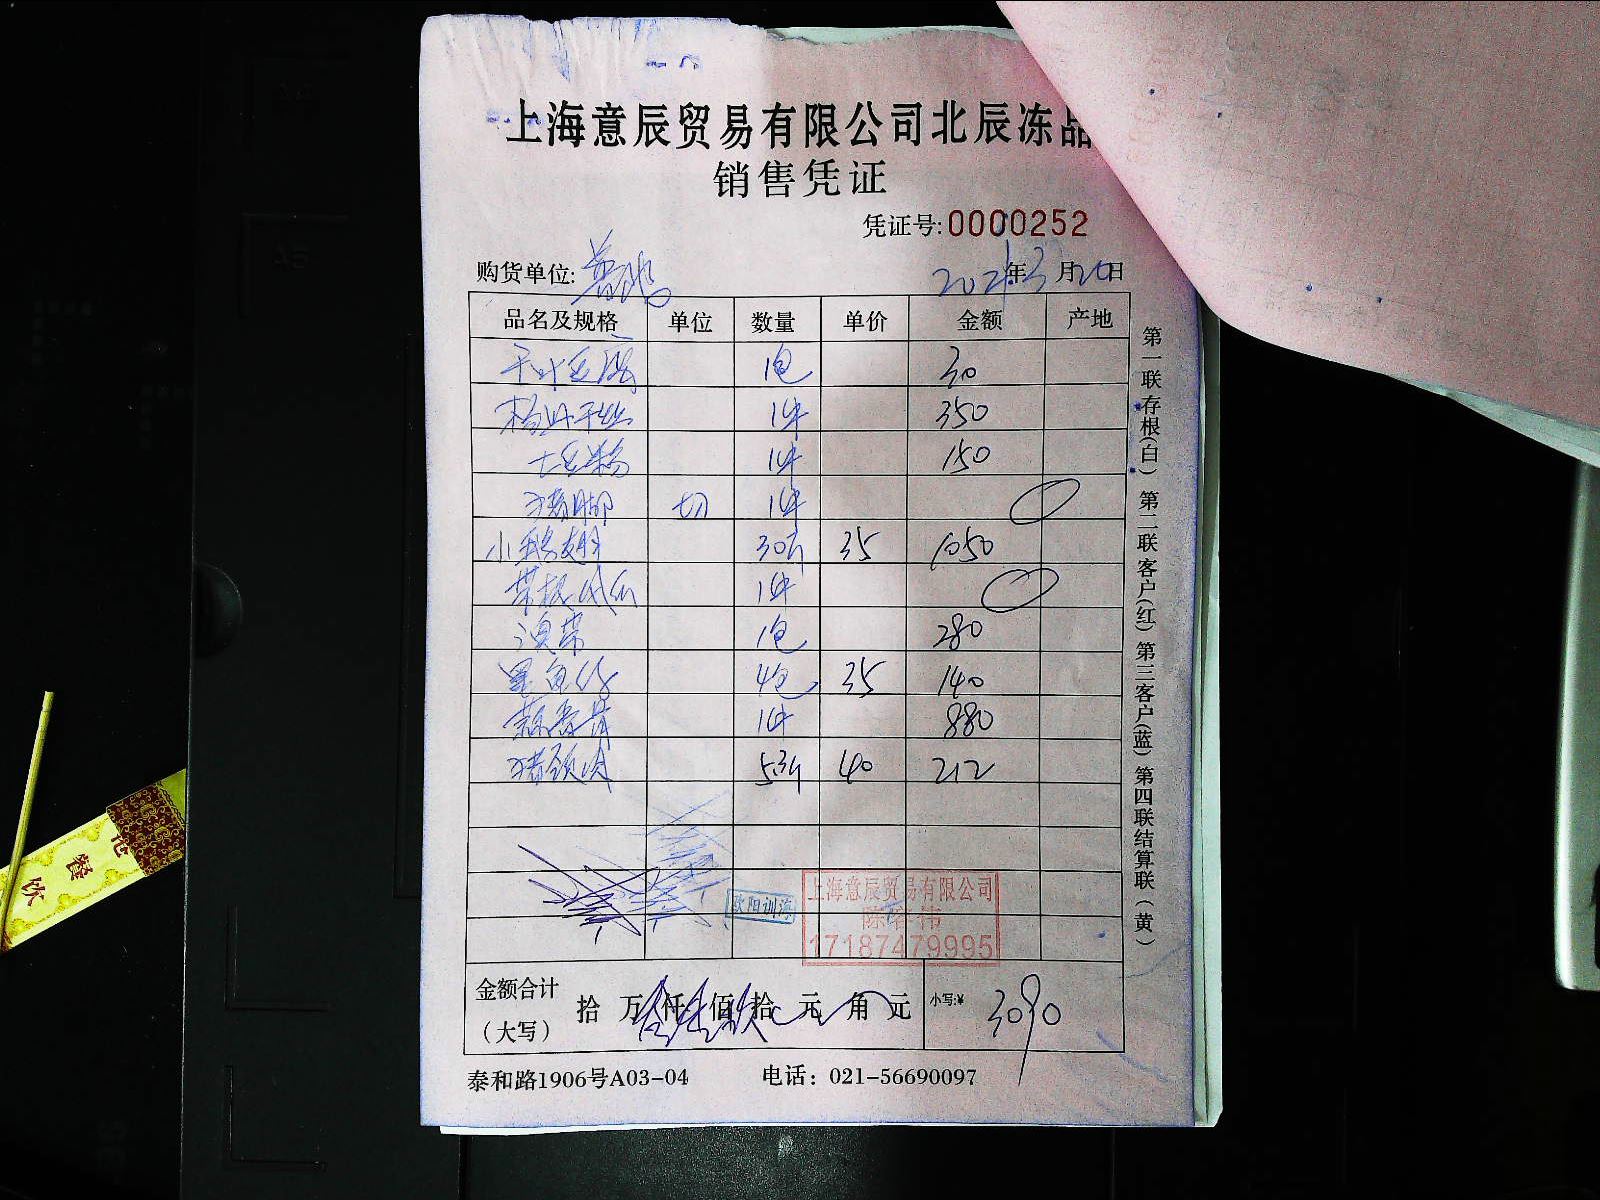 上海意辰贸易有限公司北辰冻品
销售凭证
凭证号:0000252
购货单位:
2021年3月20日
品名及规格 单位 数量 单价 金额 产地
千叶豆腐 1包 30
扬州干丝 1件 350
土豆粉 1件 150
猪脚 切 1件
小鹅翅 30斤 35 1050
1件
1包 280
墨鱼仔 4包 35 140
1件 880
猪颈肉 5.3斤 40 212
欧阳训海
上海意辰贸易有限公司
17187479995
金额合计
(大写)
拾 万 仟 佰 拾 元 角 元
小写:¥ 3090
泰和路1906号A03-04 电话：021-56690097
第一联存根(白) 第二联客户(红) 第三客户(蓝) 第四联结算联(黄)
餐
饮